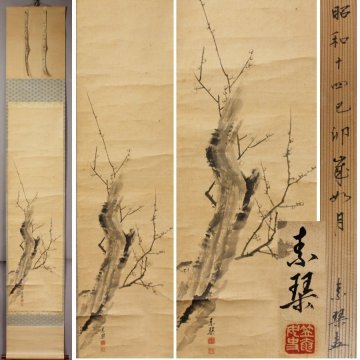 昭和十四己卯歳如月
素琴
素琴
素琴
素琴